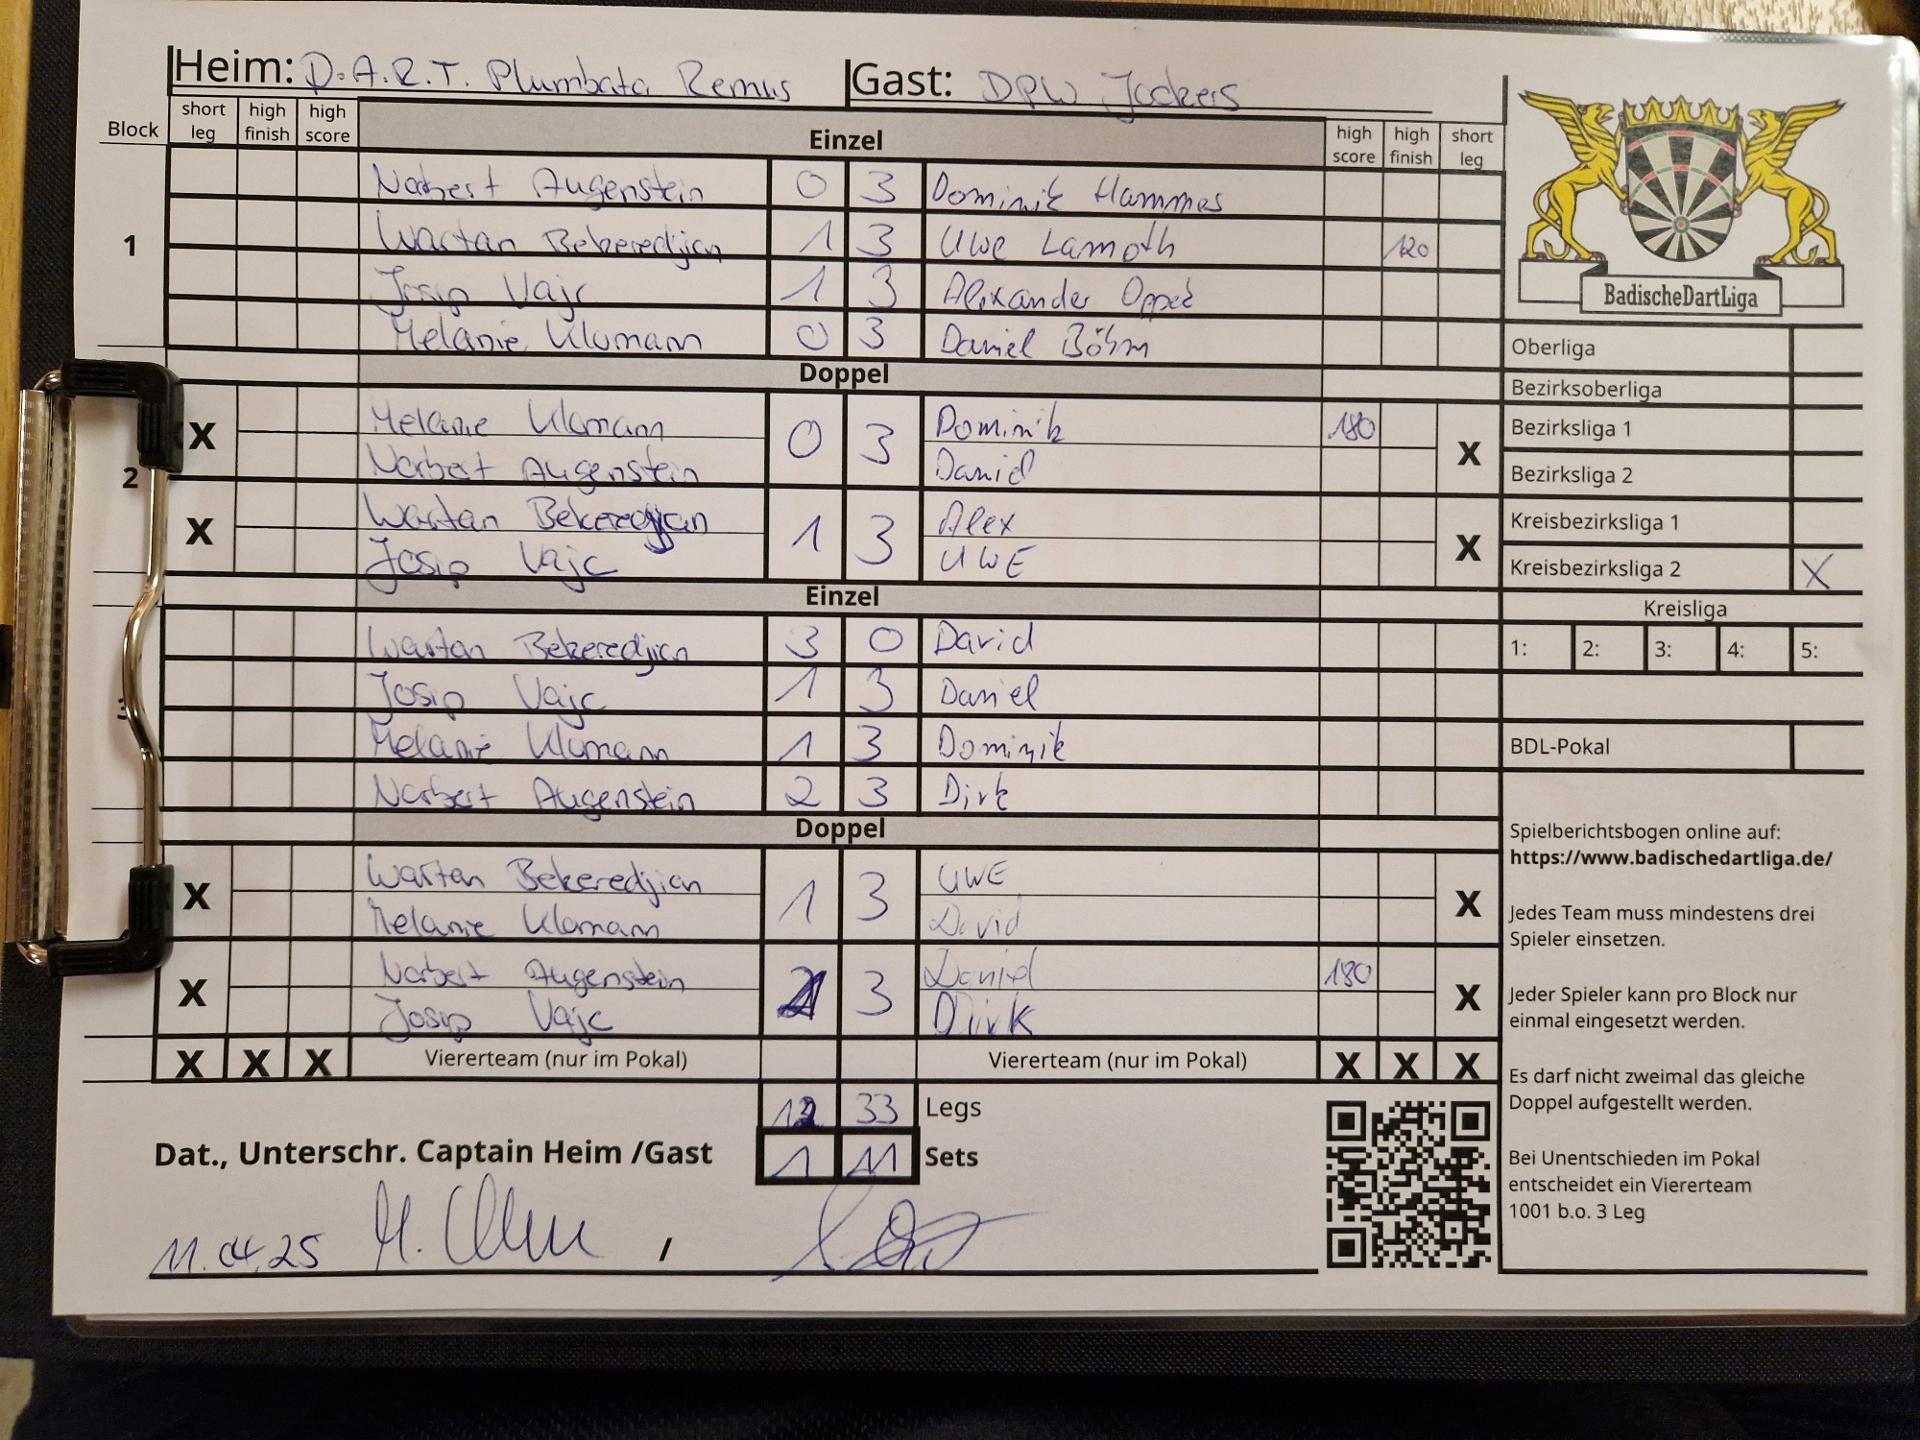 Heim: D.A.R.T. Plumbata Remus Gast: DPW Jockers
Block short leg high finish high score Einzel high score high finish short leg
1
Norbert Augenstein 0 3 Dominik Hammes
Wartan Bekeredjian 1 3 Uwe Lamoth 120
Josip Vajc 1 3 Alexander Oppelt
Melanie Klomann 0 3 Daniel Böhm
Doppel
2
X Melanie Klomann 0 3 Dominik 180 X
Norbert Augenstein Daniel
X Wartan Bekeredjian 1 3 Alex X
Josip Vajc UWE
Einzel
3
Wartan Bekeredjian 3 0 David
Josip Vajc 1 3 Daniel
Melanie Klomann 1 3 Dominik
Norbert Augenstein 2 3 Dirk
Doppel
X Wartan Bekeredjian 1 3 UWE X
Melanie Klomann David
X Norbert Augenstein 2 3 Daniel 180 X
Josip Vajc Dirk
X X X Viererteam (nur im Pokal) Viererteam (nur im Pokal) X X X
12 33 Legs
Dat., Unterschr. Captain Heim /Gast 1 11 Sets
11.04.25 /
BadischeDartLiga
Oberliga
Bezirksoberliga
Bezirksliga 1
Bezirksliga 2
Kreisbezirksliga 1
Kreisbezirksliga 2 X
Kreisliga
1: 2: 3: 4: 5:
BDL-Pokal
Spielberichtsbogen online auf:
https://www.badischedartliga.de/
Jedes Team muss mindestens drei
Spieler einsetzen.
Jeder Spieler kann pro Block nur
einmal eingesetzt werden.
Es darf nicht zweimal das gleiche
Doppel aufgestellt werden.
Bei Unentschieden im Pokal
entscheidet ein Viererteam
1001 b.o. 3 Leg